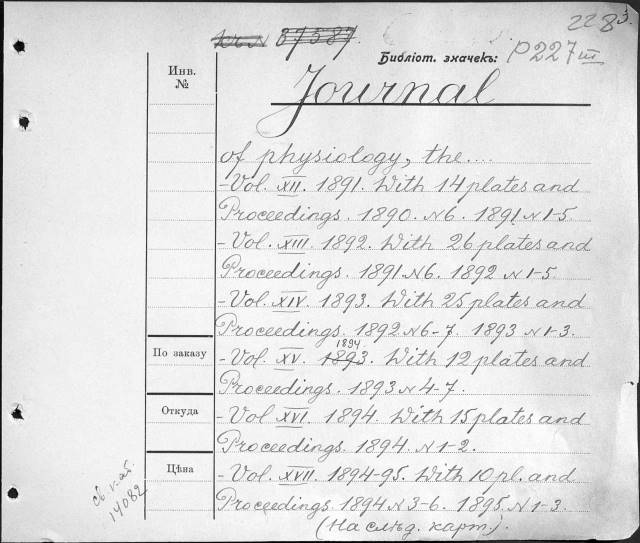 2283
К. к. N 37587.
Библіот. значекъ: P227 III
Инв.
№
Journal
of physiology, the....
- Vol. XII. 1891. With 14 plates and
Proceedings. 1890. N6. 1891. N1-5.
- Vol. XIII. 1892. With 26 plates and
Proceedings. 1891. N6. 1892 N1-5
- Vol. XIV. 1893. With 25 plates and
Proceedings. 1892 N6-7. 1893 N1-3.
1894
По заказу
- Vol. XV. 1893. With 12 plates and
Proceedings. 1893 N 4-7.
Откуда
- Vol XVI. 1894. With 15 plates and
Proceedings. 1894. N1-2.
Цѣна
- Vol. XVII. 1894-95. With 10 pl. and
Proceedings 1894 N3-6. 1895. N1-3.
(На слѣд. карт.).
14082